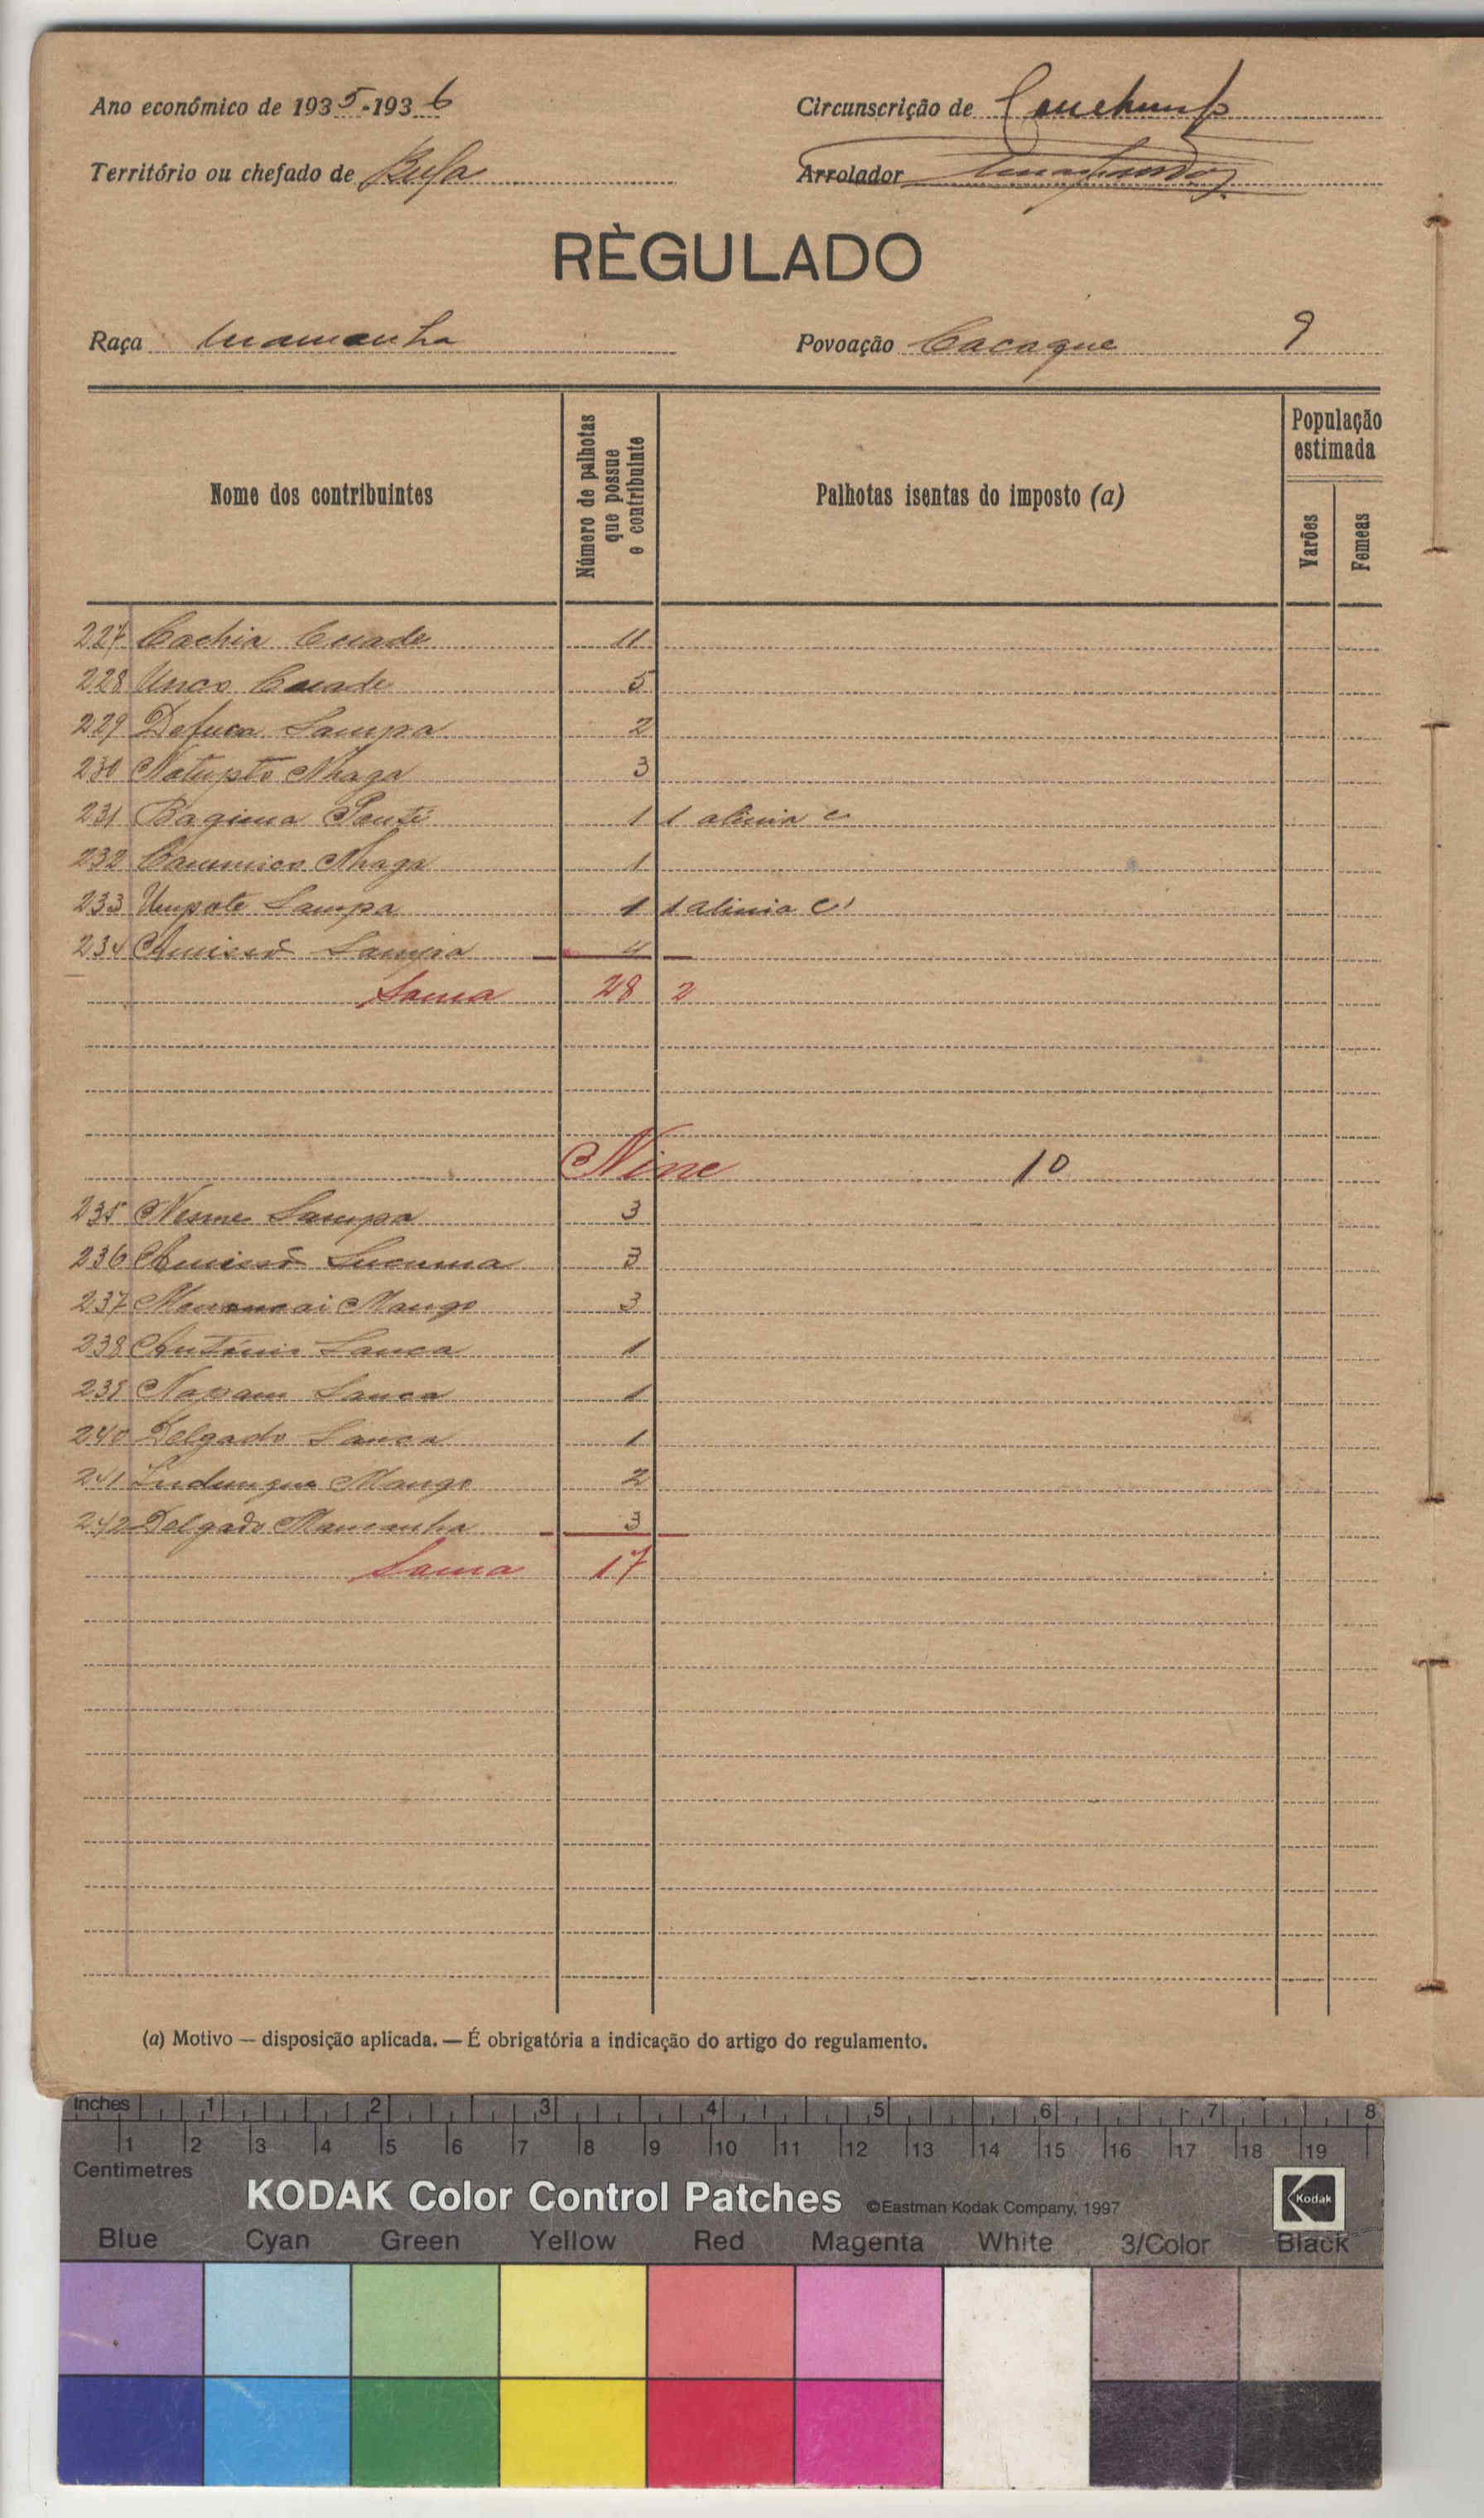 Ano económico de 1935-1936
Circunscrição de
Território ou chefado de Bufa
Arrolador
RÈGULADO
Raça Mamanha
Povoação Cacaque 9
Nome dos contribuintes
Número de palhotas que possue o contribuinte
Palhotas isentas do imposto (a)
População estimada
Varões
Femeas
227 Cachia Cuade 11
228 Unco Cuade 5
229 Defuca Sampa 2
230 Natupto Nhaga 3
231 Bagima 1 1 alinia c
232 Nhaga 1
233 Umpate Sampa 1 1 alinia c
234 Sampa 4
Soma 28 2
Nine 10
235 Nesme Sampa 3
236 3
237 Mango 3
238 António Sanca 1
239 Napam Sanca 1
240 Delgado Sanca 1
241 Indungue Mango 2
242 Delgado Mancanha 3
Soma 17
(a) Motivo — disposição aplicada. — É obrigatória a indicação do artigo do regulamento.
Inches 1 2 3 4 5 6 7 8
1 2 3 4 5 6 7 8 9 10 11 12 13 14 15 16 17 18 19
Centimetres
KODAK Color Control Patches ©Eastman Kodak Company, 1997 Kodak
Blue Cyan Green Yellow Red Magenta White 3/Color Black